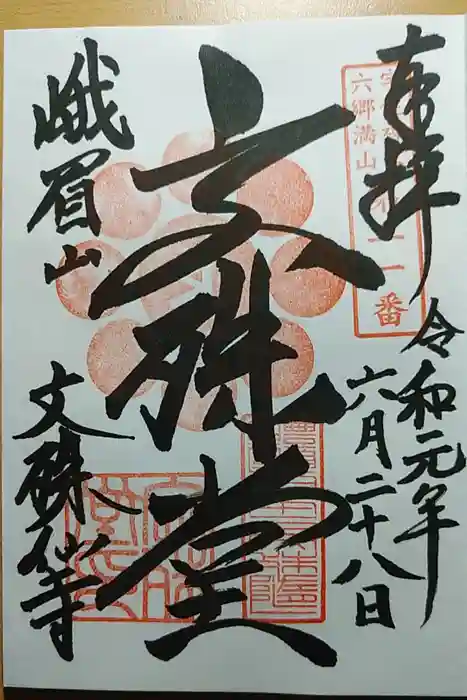 奉拝
令和元年
六月二十八日
六郷満山
二一番
文殊堂
峨眉山
文殊仙寺